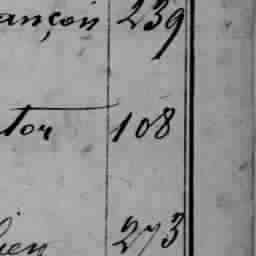 ançois 239
tor 108
lien 273